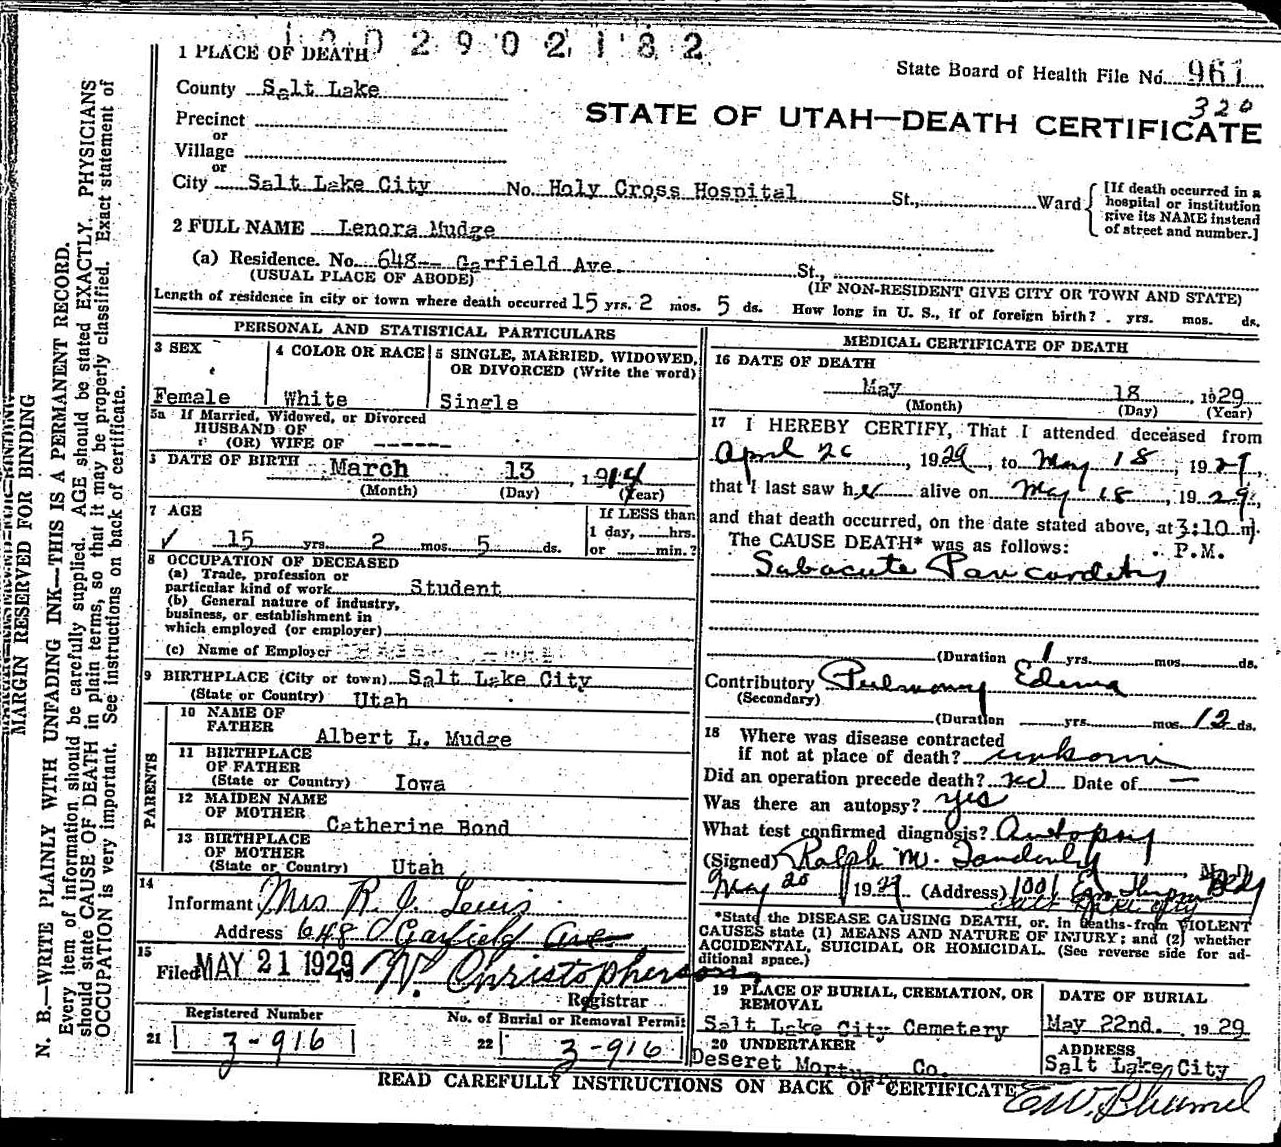 2902182
1 PLACE OF DEATH
State Board of Health File No. 961
320
County Salt Lake
STATE OF UTAH—DEATH CERTIFICATE
Precinct
or
Village
or
City Salt Lake City No. Holy Cross Hospital St., Ward
[If death occurred in a
hospital or institution
give its NAME instead
of street and number.]
2 FULL NAME Lenora Mudge
(a) Residence. No. 648-- Garfield Ave. St.,
(USUAL PLACE OF ABODE) (IF NON-RESIDENT GIVE CITY OR TOWN AND STATE)
Length of residence in city or town where death occurred 15 yrs. 2 mos. 5 ds. How long in U. S., if of foreign birth? yrs. mos. ds.
PERSONAL AND STATISTICAL PARTICULARS
3 SEX
Female
4 COLOR OR RACE
White
5 SINGLE, MARRIED, WIDOWED,
OR DIVORCED (Write the word)
Single
5a If Married, Widowed, or Divorced
HUSBAND OF
(OR) WIFE OF ------
DATE OF BIRTH March 13, 1914
(Month) (Day) (Year)
7 AGE
15 yrs. 2 mos. 5 ds.
If LESS than
1 day, hrs.
or min.?
8 OCCUPATION OF DECEASED
(a) Trade, profession or
particular kind of work Student
(b) General nature of industry,
business, or establishment in
which employed (or employer)
(c) Name of Employer
9 BIRTHPLACE (City or town) Salt Lake City
(State or Country) Utah
PARENTS
10 NAME OF
FATHER Albert L. Mudge
11 BIRTHPLACE
OF FATHER
(State or Country) Iowa
12 MAIDEN NAME
OF MOTHER Catherine Bond
13 BIRTHPLACE
OF MOTHER
(State or Country) Utah
14
Informant Mrs R. J. Lewis
Address 648 Garfield Ave
15
Filed MAY 21 1929 19 W. Christopherson
Registrar
Registered Number
21 3-916
No. of Burial or Removal Permit
22 3-916
MEDICAL CERTIFICATE OF DEATH
16 DATE OF DEATH
May 18, 1929
(Month) (Day) (Year)
17 I HEREBY CERTIFY, That I attended deceased from
April 26, 1929, to May 18, 1929,
that I last saw her alive on May 18, 1929,
and that death occurred, on the date stated above, at 3:10 m.
The CAUSE DEATH* was as follows: P.M.
Subacute Pancarditis
(Duration 1 yrs. mos. ds.
Contributory Pulmonary Edema
(Secondary)
(Duration yrs. mos. 12 ds.
18 Where was disease contracted
if not at place of death? unknown
Did an operation precede death? no Date of —
Was there an autopsy? yes
What test confirmed diagnosis? Autopsy
(Signed) Ralph M. M. D.
May 20 1929 (Address) 1001 Bldg
Salt Lake City
*State the DISEASE CAUSING DEATH, or, in deaths from VIOLENT
CAUSES state (1) MEANS AND NATURE OF INJURY; and (2) whether
ACCIDENTAL, SUICIDAL OR HOMICIDAL. (See reverse side for ad-
ditional space.)
19 PLACE OF BURIAL, CREMATION, OR
REMOVAL
Salt Lake City Cemetery
DATE OF BURIAL
May 22nd. 1929
20 UNDERTAKER
Deseret Mortuary Co.
ADDRESS
Salt Lake City
READ CAREFULLY INSTRUCTIONS ON BACK OF CERTIFICATE
MARGIN RESERVED FOR BINDING
N. B.—WRITE PLAINLY WITH UNFADING INK—THIS IS A PERMANENT RECORD.
Every item of information should be carefully supplied. AGE should be stated EXACTLY. PHYSICIANS
should state CAUSE OF DEATH in plain terms, so that it may be properly classified. Exact statement of
OCCUPATION is very important. See instructions on back of certificate.